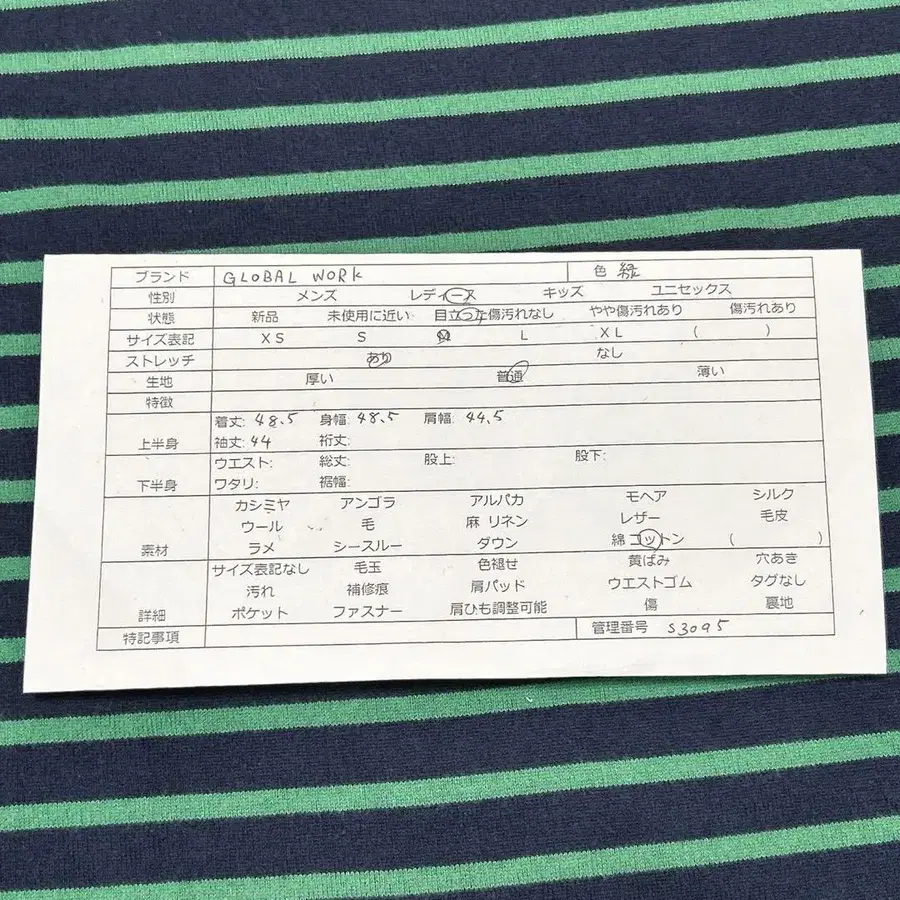 ブランド GLOBAL WORK 色 緑
性別 メンズ レディース キッズ ユニセックス
状態 新品 未使用に近い 目立った傷汚れなし やや傷汚れあり 傷汚れあり
サイズ表記 XS S M L XL ( )
ストレッチ あり なし
生地 厚い 普通 薄い
特徴
上半身 着丈: 48.5 身幅: 48.5 肩幅: 44.5
袖丈: 44 裄丈:
下半身 ウエスト: 総丈: 股上: 股下:
ワタリ: 裾幅:
素材 カシミヤ アンゴラ アルパカ モヘア シルク
ウール 毛 麻 リネン レザー 毛皮
ラメ シースルー ダウン 綿 コットン ( )
詳細 サイズ表記なし 毛玉 色褪せ 黄ばみ 穴あき
汚れ 補修痕 肩パッド ウエストゴム タグなし
ポケット ファスナー 肩ひも調整可能 傷 裏地
特記事項 管理番号 S3095